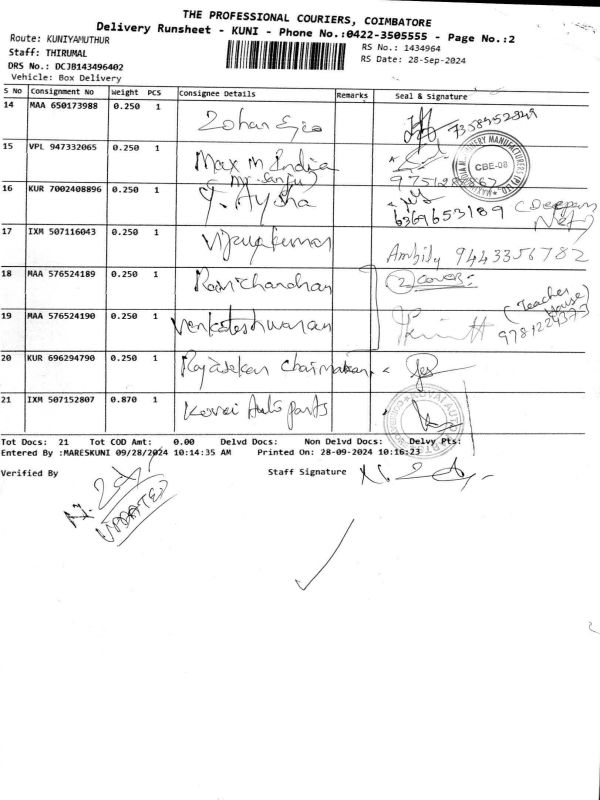 THE PROFESSIONAL COURIERS, COIMBATORE
Delivery Runsheet - KUNI - Phone No.:0422-3505555 - Page No.:2
Route: KUNIYAMUTHUR
RS No.: 1434964
Staff: THIRUMAL
RS Date: 28-Sep-2024
DRS No.: DCJB143496402
Vehicle: Box Delivery
S No Consignment No Weight PCS Consignee Details Remarks Seal & Signature
14 MAA 650173988 0.250 1 Zohan
7358952849
15 VPL 947332065 0.250 1 Max M India
Mr. Sanju
CBE-08
16 KUR 7002408896 0.250 1 T. Aysha
6369653189
17 IXM 507116043 0.250 1 Vijayakumar Ambily 9443356782
18 MAA 576524189 0.250 1 Ravichandran (2) cover:
(Teacher
House)
19 MAA 576524190 0.250 1 Venkateshwaran
20 KUR 696294790 0.250 1 Rajasekar
21 IXM 507152807 0.870 1 Kovai Auto parts
Tot Docs: 21 Tot COD Amt: 0.00 Delvd Docs: Non Delvd Docs: Delvy Pts:
Entered By :MARESKUNI 09/28/2024 10:14:35 AM Printed On: 28-09-2024 10:16:23
Verified By Staff Signature
UPDATED